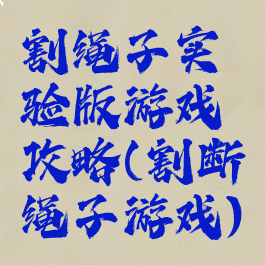 割绳子实
验版游戏
攻略(割断
绳子游戏)